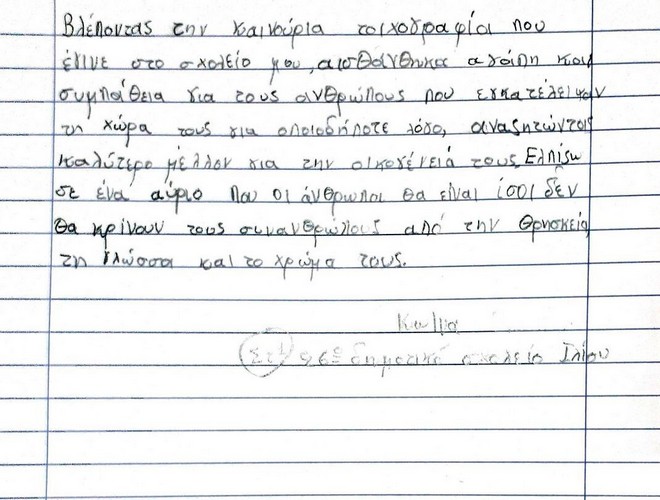 Βλέποντας την καινούρια τοιχογραφία που
έγινε στο σχολείο μου, αισθάνθηκα αγάπη και
συμπάθεια για τους ανθρώπους που εγκατέλειψαν
τη χώρα τους για οποιοδήποτε λόγο, αναζητώντας
καλύτερο μέλλον για την οικογένειά τους. Ελπίζω
σε ένα αύριο που οι άνθρωποι θα είναι ίσοι δεν
θα κρίνουν τους συνανθρώπους από την θρησκεία
τη γλώσσα και το χρώμα τους.
Στ1 9 6ο δημοτικό σχολείο Ιλίου